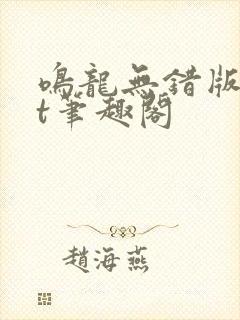 鳴龍無錯版
t筆趣閣
趙海燕